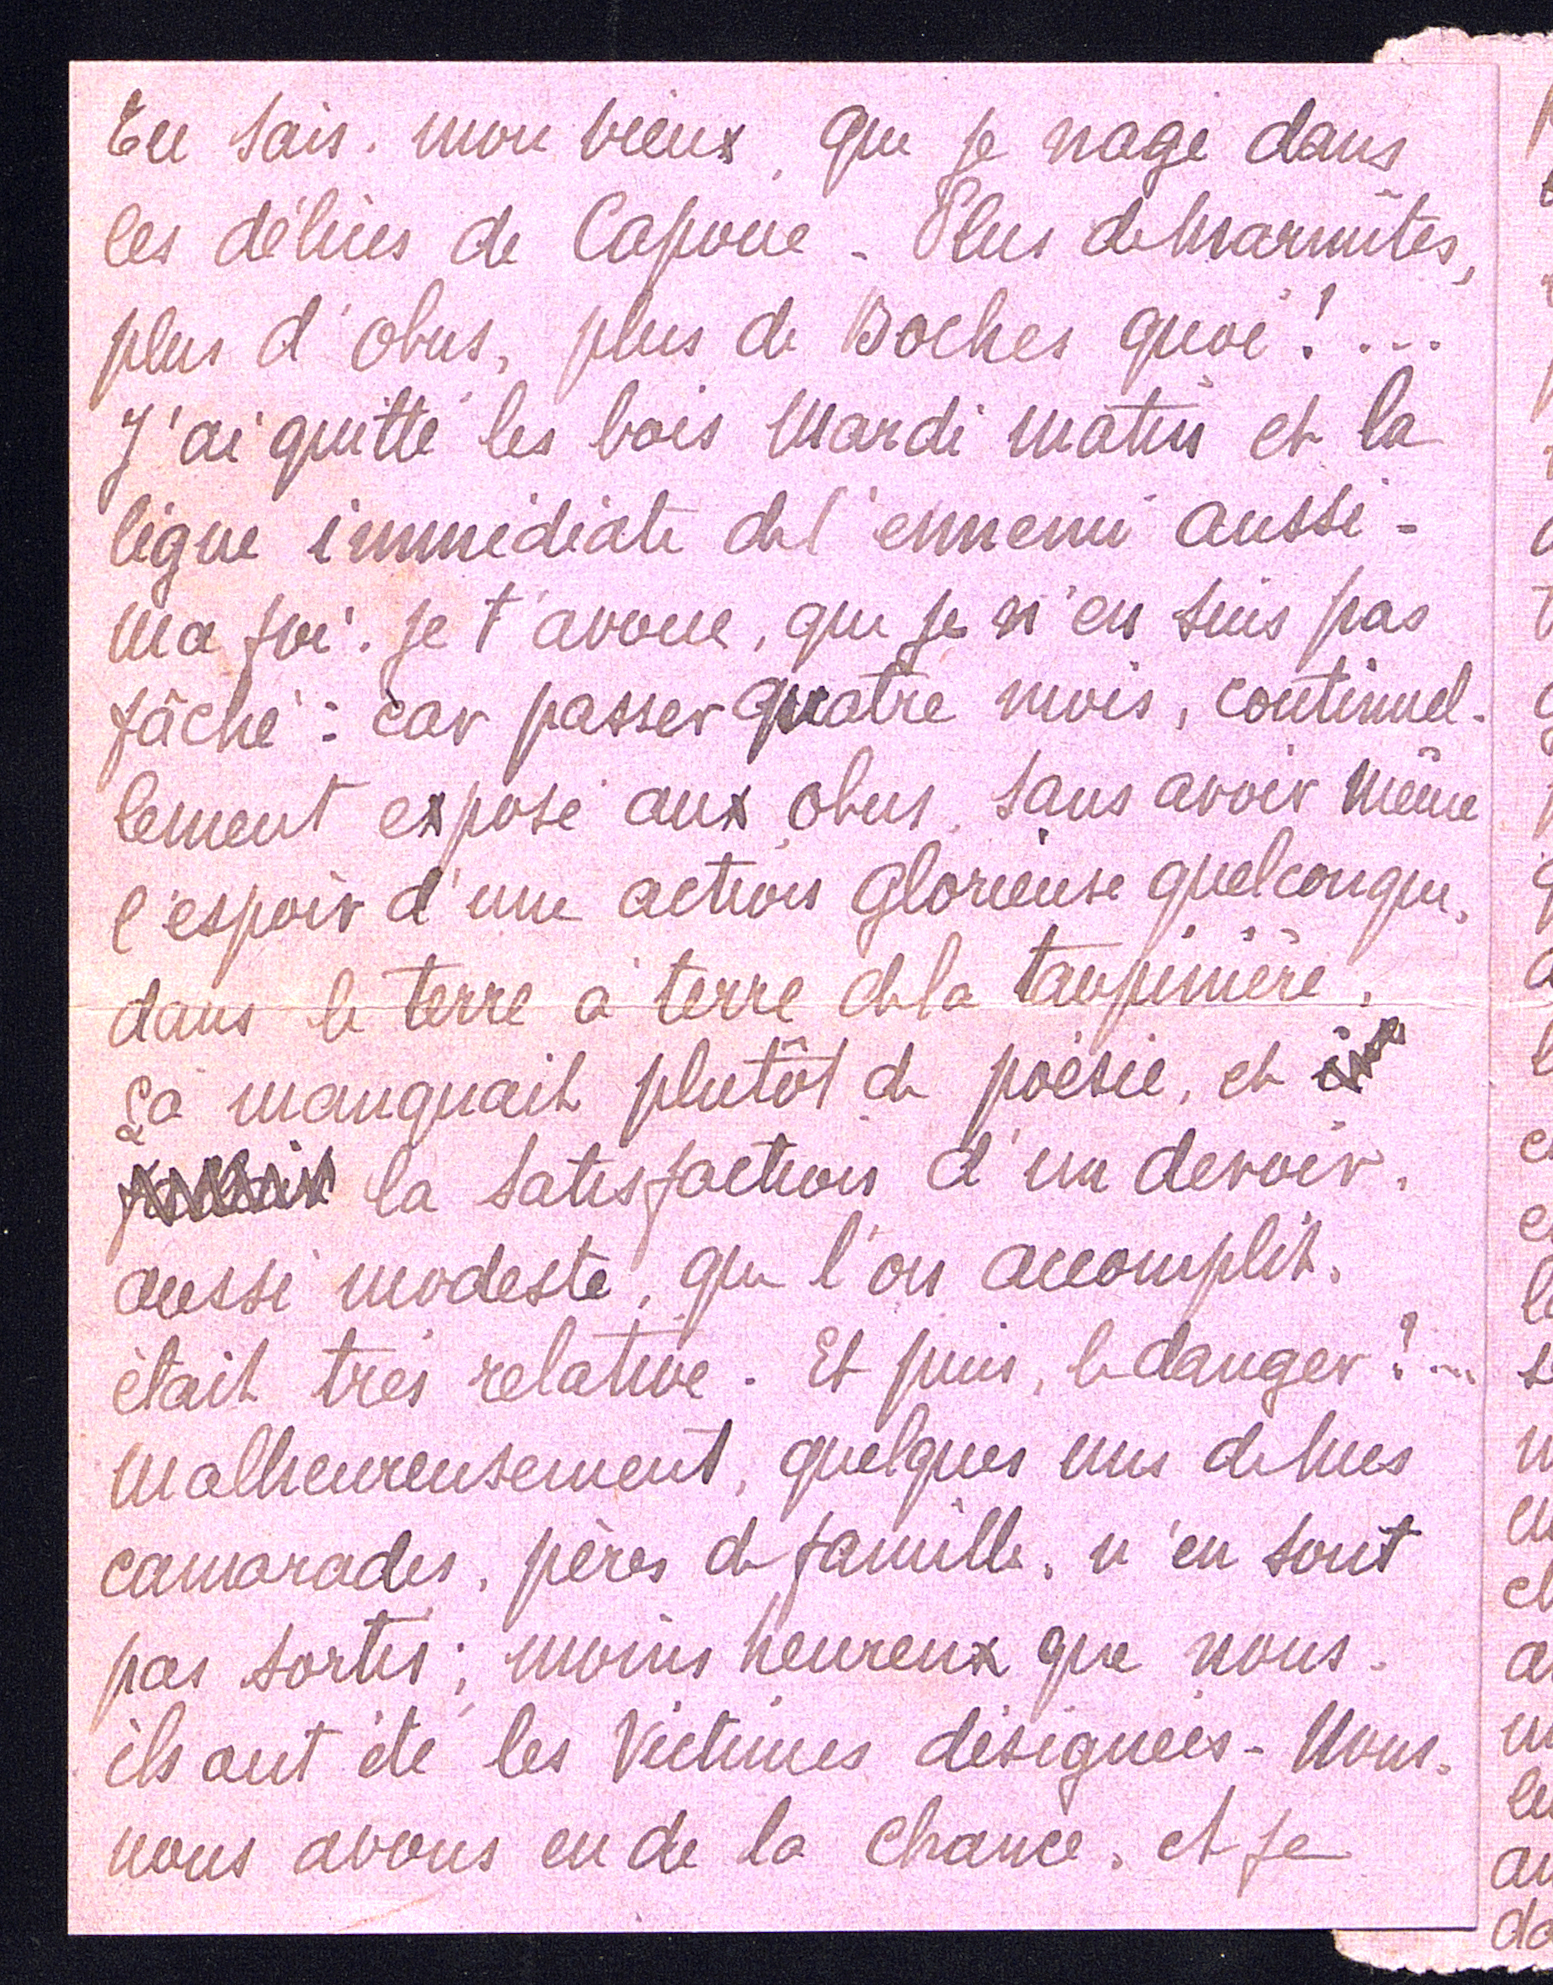 Tu sais, mon vieux, que je nage dans
les délices de Capoue - Plus de marmites,
plus d'obus, plus de Boches quoi !...
J'ai quitté les bois Mardi matin et la
ligne immédiate de l'ennemi aussi -
Ma foi, je t'avoue, que je n'en suis pas
fâché : car passer quatre mois, continuel-
lement exposé aux obus, sans avoir même
l'espoir d'une action glorieuse quelconque,
dans le terre à terre de la taupinière,
ça manquait plutôt de poésie, et
la satisfaction d'un devoir,
aussi modeste, que l'on accomplit,
était très relative. Et puis, le danger !...
Malheureusement, quelques uns de mes
camarades, pères de famille, n'en sont
pas sortis ; moins heureux que nous,
ils ont été les victimes désignées - Nous,
nous avons eu de la chance, et je